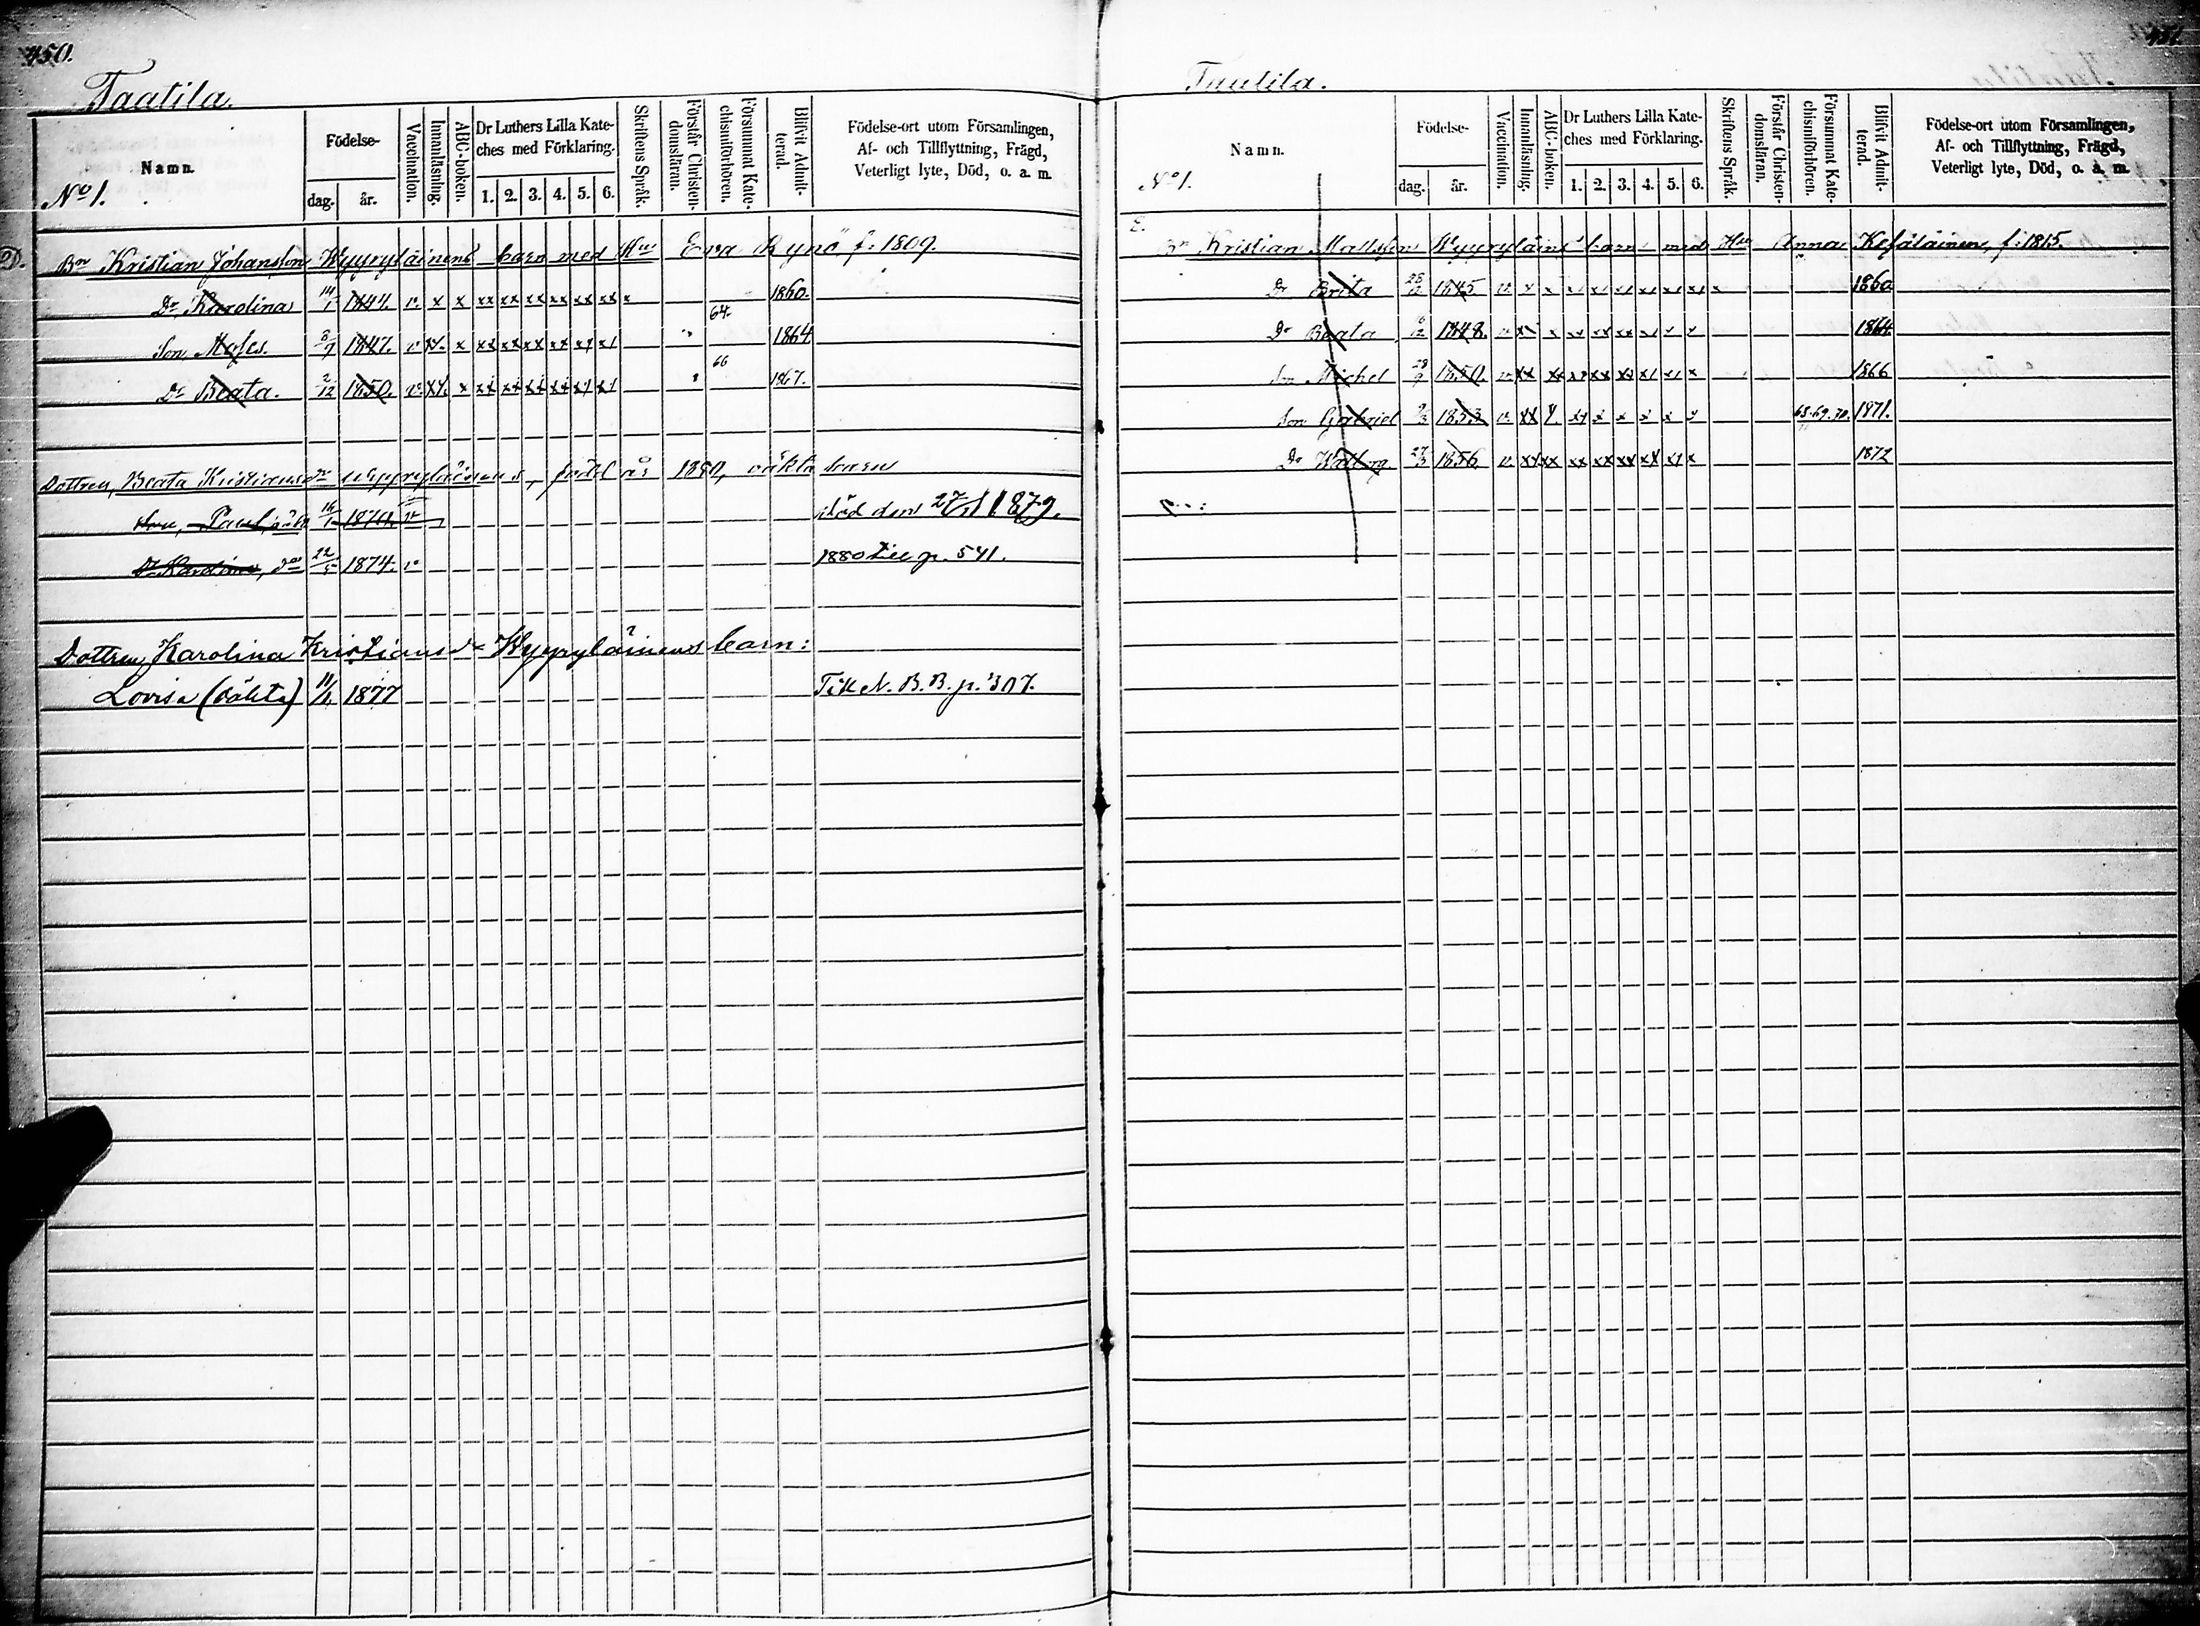 450.
Taatila.
Namn.
No 1.
Födelse-
dag.
år.
Vaccination.
Innanläsning.
ABC-boken.
Dr Luthers Lilla Kate-
ches med Förklaring.
1. 2. 3. 4. 5. 6.
Skriftens Språk.
Förstår Christen-
domsläran.
Försummat Kate-
chismiförhören.
Blifvit Admit-
terad.
Födelse-ort utom Församlingen,
Af- och Tillflyttning, Frägd,
Veterligt lyte, Död, o. a. m.
D. Bn Kristian Johansson Wyyryläinens barn med Hu Eva Rynö f: 1809.
Dr Karolina 14/1 1844. v. x x xx xx xx xx xx xx x 1860.
64.
Son Moses. 3/9 1847. v xx. x xx xx xx xx xx xx 1864
66
Dr Beata. 2/12 1850. v. xx. x xx xx xx xx xx xx 1867.
Dottren, Beata Kristiansdr Wyyryläinens, född år 1850, oäkta barn
Son, Paul, oäkta 16/1 1870. v död den 27/1 1879.
Dr Karolina, do 22/5 1874. v 1880 till p. 541.
Dottren, Karolina Kristiansdr Wyyryläinens barn:
Lovisa (oäkta) 11/1. 1877 Till N. B. B. p. 307.
451
Taatila.
Namn.
No 1.
Födelse-
dag.
år.
Vaccination.
Innanläsning.
ABC-boken.
Dr Luthers Lilla Kate-
ches med Förklaring.
1. 2. 3. 4. 5. 6.
Skriftens Språk.
Förstår Christen-
domsläran.
Försummat Kate-
chismiförhören.
Blifvit Admit-
terad.
Födelse-ort utom Församlingen,
Af- och Tillflyttning, Frägd,
Veterligt lyte, Död, o. a. m.
E.
Bn Kristian Mattsson Wyyryläins barn med Hu Anna Kesäläinen, f: 1815.
Dr Brita 28/12 1845. v. x x xx xx xx xx xx xx x 1860
Dr Beata 6/12 1848. v xx x xx xx xx xx x x 1864.
Son Michel 28/9 1850. v. xx xx xx xx xx xx xx x 1866
Son Gabriel 9/3 1853 v. xx x xx x x x x x 68.69.70. 1871.
Dr Walborg. 27/3 1856 v. xx xx xx xx xx xx xx x 1872